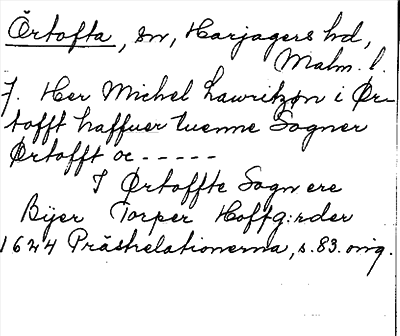 Örtofta, sn, Harjagers hd,
Malm. l.
7. Her Michel Lawritzøn i Ør-
tofft haffuer tuenne Sogner
Ørtofft oc - - - - -
I Ørtoffte Sogn ere
Bÿer Torper Hoffg:rder
1624 Prästrelationerna, s. 83. orig.